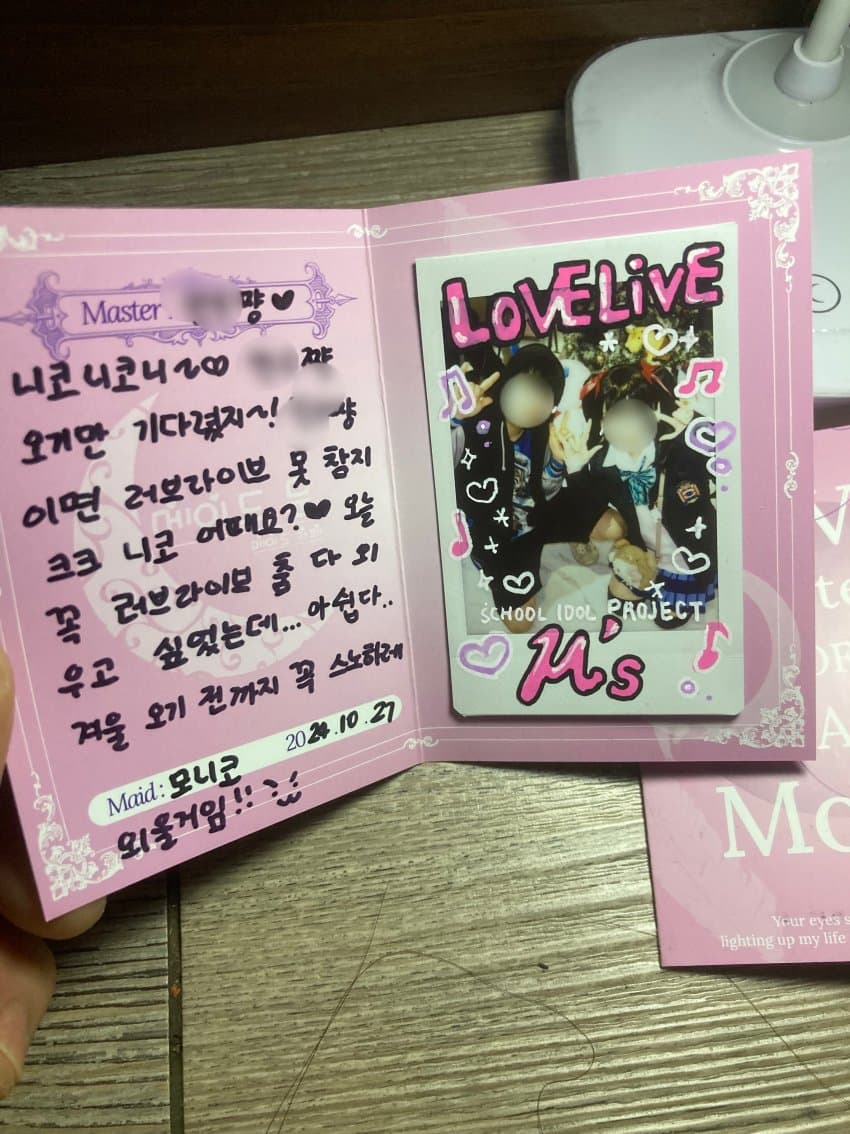 Master : 먕♥
니코니코니~♡ 쨔
오기만 기다렸지~! 상
이면 러브라이브 못 참지
크크 니코 어때요?♥ 오늘
꼭 러브라이브 춤 다 외
우고 싶었는데... 아쉽다..
겨울 오기 전까지 꼭 스노하레
2024.10.27
Maid : 모니코
외울거임!!
LOVELiVE
SCHOOL IDOL PROJECT
μ's
Mo
Your eyes s
lighting up my life